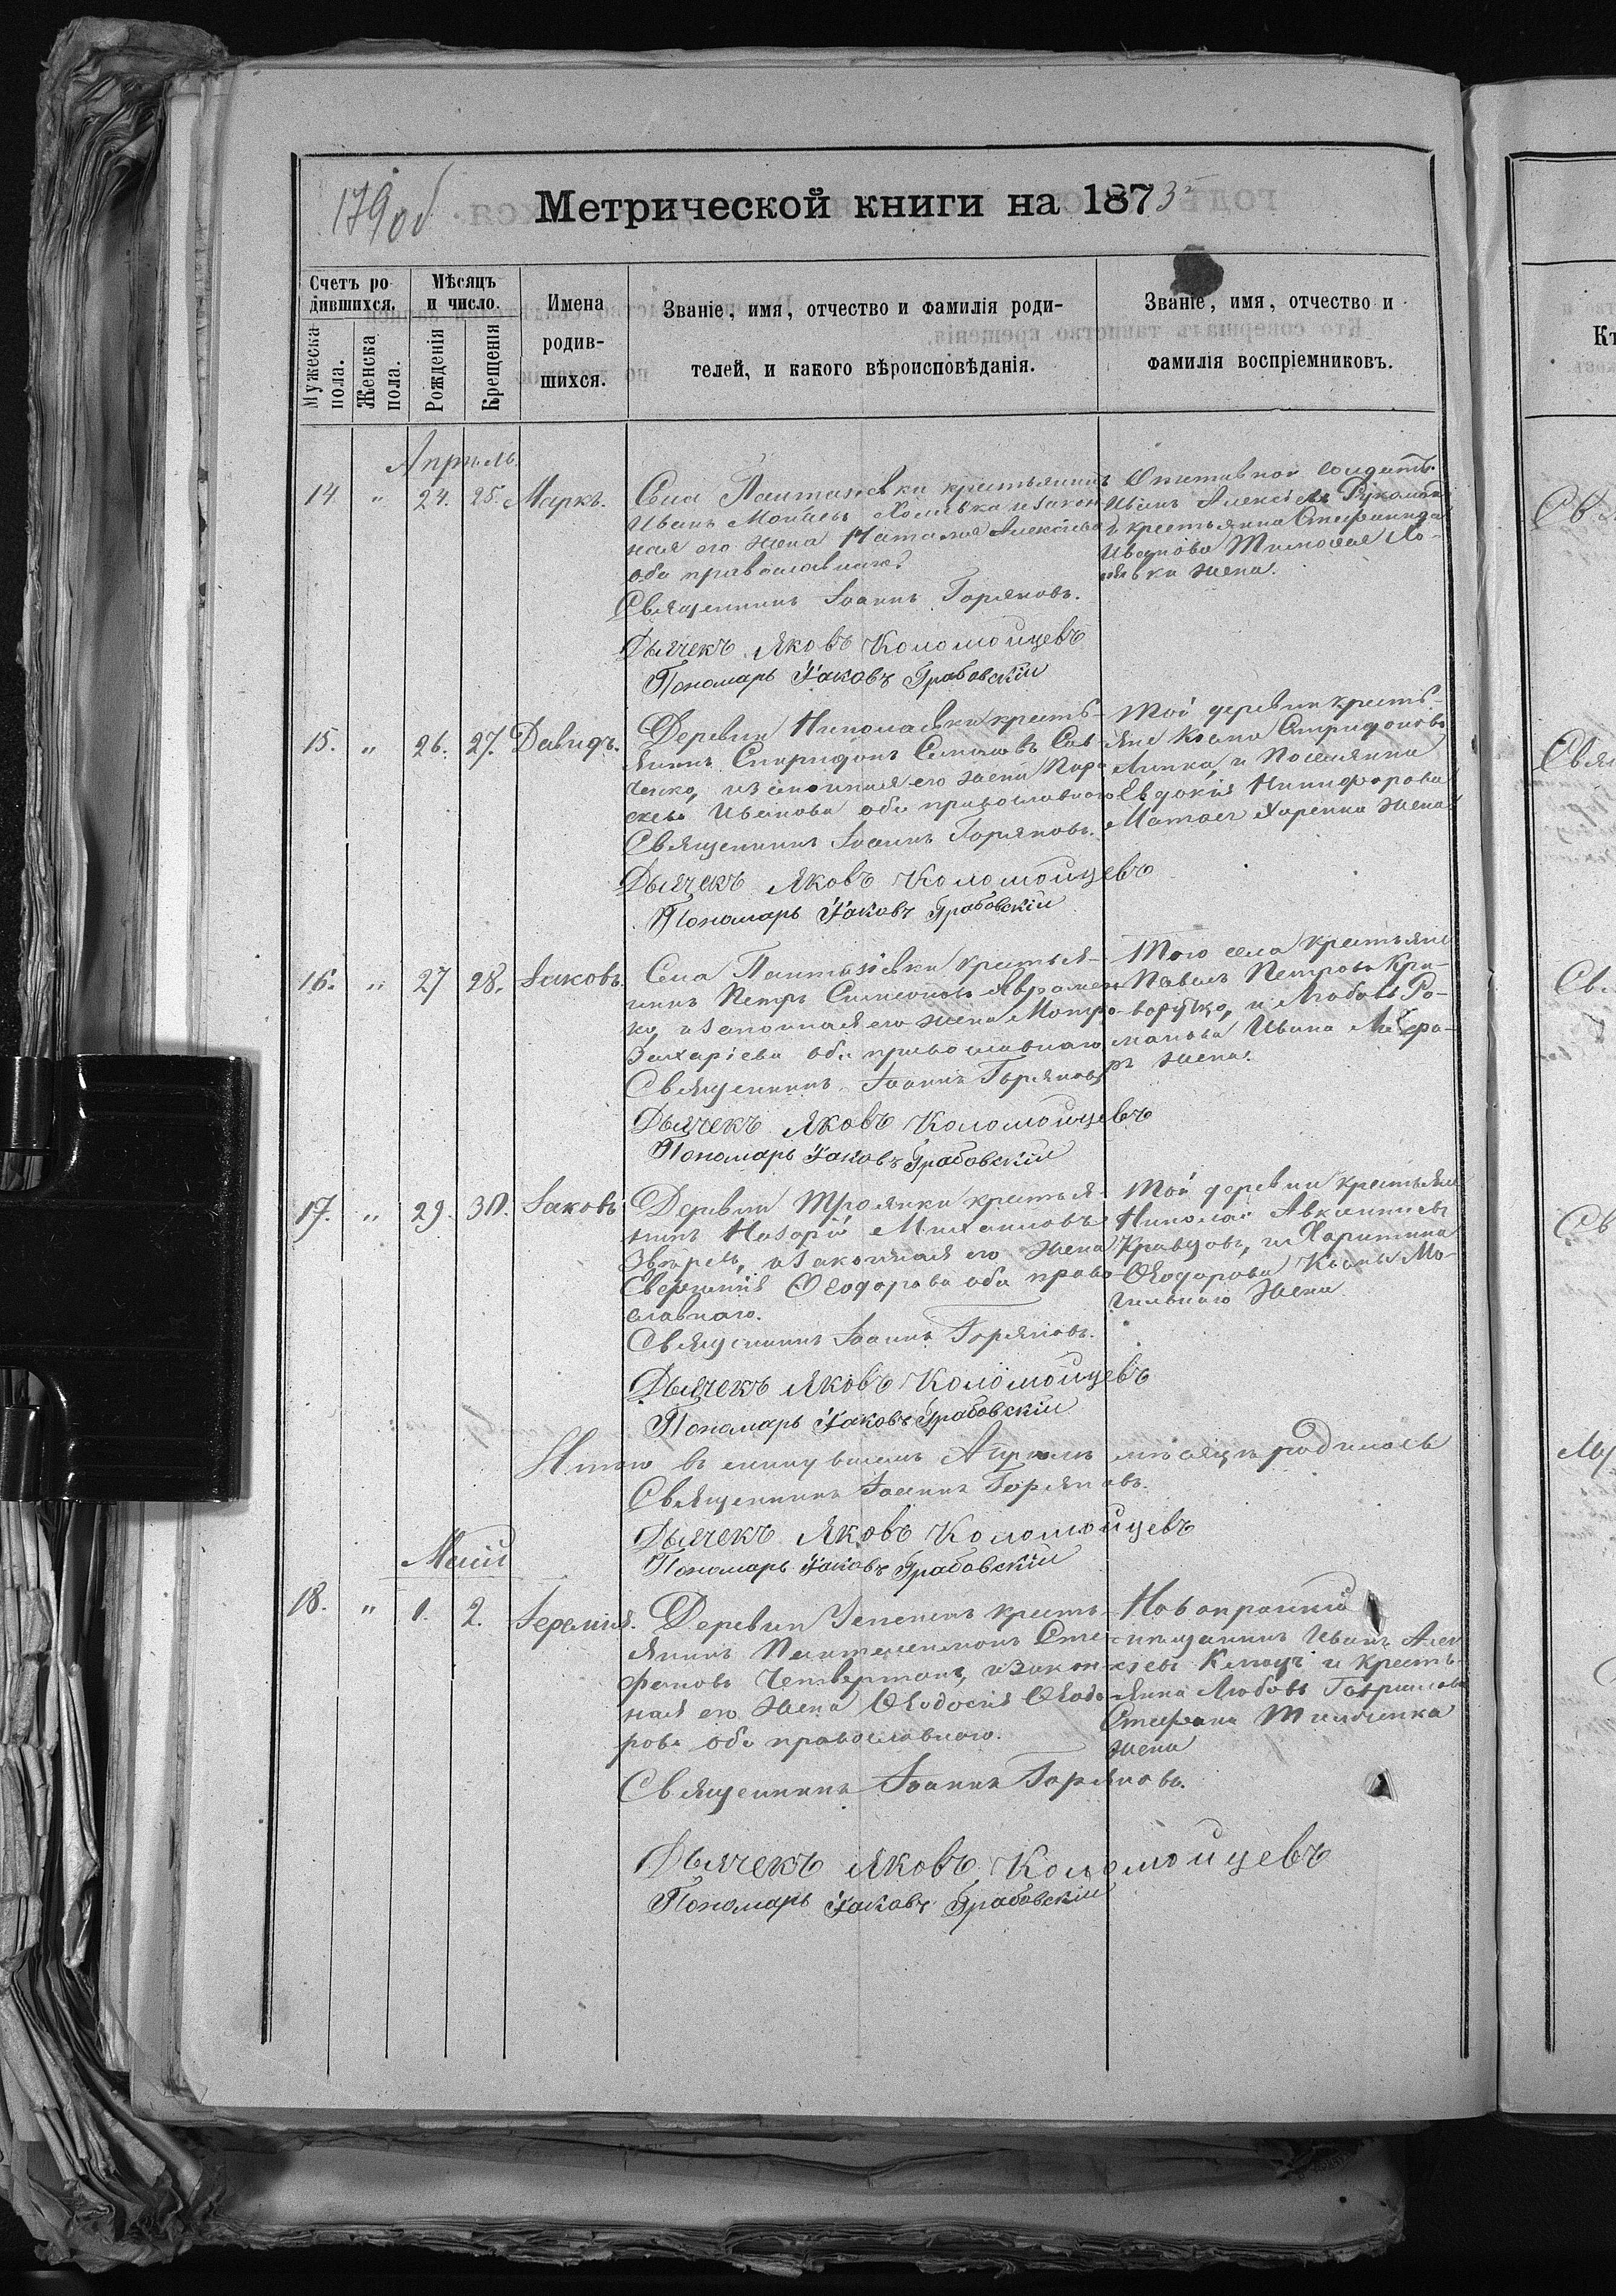 179об
Метрической книги на 1873
Счетъ родившихся.
Мѣсяцъ и число.
Имена родившихся.
Званіе, имя, отчество и фамилія родителей, и какого вѣроисповѣданія.
Званіе, имя, отчество и фамилія воспріемниковъ.
Мужеска пола.
Женска пола.
Рожденія
Крещенія
Апрѣль.
14 " 24. 25. Маркъ.
Села Пантазіевки крестьянинъ
Иванъ Моѵсеевъ и закон-
ная его жена Наталія Алексіева
оба православнаго.
Священникъ Іоаннъ Горяновъ.
Дьячекъ Яковъ Коломойцевъ
Пономарь Іаковъ Грабовскій
солдатъ
Иванъ Алексіевъ
крестьянина Стефанида
Иванова Тимофея
жена.
15. " 26. 27. Давидъ.
Деревни Николаевки кресть-
янинъ Спиридонъ Сав-
ченко, и законная его жена Пара-
скева Иванова оба православнаго
Священникъ Іоаннъ Горяновъ.
Дьячекъ Яковъ Коломойцевъ
Пономарь Іаковъ Грабовскій
Той деревни кресть-
яне Козма Спиридоновъ
и Поселянка
Евдокія Никифорова
Матвея Харенка жена
16. " 27 28. Іаковъ.
Села Пантазіевки крестья-
нинъ Петръ Симеоновъ Аврамен-
ко, и законная его жена Мотро-
Захаріева оба православнаго
Священникъ Іоаннъ Горяновъ
Дьячекъ Яковъ Коломойцевъ
Пономарь Іаковъ Грабовскій
Того села крестьяне
Павелъ Петровъ Кри-
воручко, и Любовь Ро-
манова Ивана
жена.
17. " 29. 30. Іаковъ
Деревни Троянки крестья-
нинъ Назарій Михаиловъ
и законная его жена
Евгенія Ѳеодорова оба право-
славнаго.
Священникъ Іоаннъ Горяновъ.
Дьячекъ Яковъ Коломойцевъ
Пономарь Іаковъ Грабовскій
Той деревни крестьяне
Николай
Кравцовъ, и Харитина
Ѳеодорова Козмы Мо-
гильнаго жена
Итого въ минувшемъ Апрѣлѣ мѣсяцѣ родилось
Священникъ Іоаннъ Горяновъ.
Дьячекъ Яковъ Коломойцевъ
Пономарь Іаковъ Грабовскій
Маій
18. " 1. 2. Іеремія.
Деревни кресть-
янинъ Пантелеимонъ Сте-
фановъ и закон-
ная его жена Ѳеодосія Ѳеодо-
рова оба православнаго.
Священникъ Іоаннъ Горяновъ.
Дьячекъ Яковъ Коломойцевъ
Пономарь Іаковъ Грабовскій
мѣщанинъ Иванъ Алек-
сіевъ и кресть-
янка Любовь Гавриилова
Стефана
жена